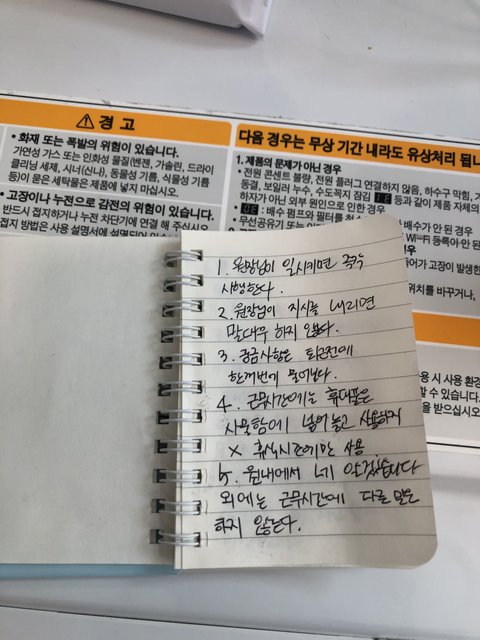 ⚠ 경 고
• 화재 또는 폭발의 위험이 있습니다.
가연성 가스 또는 인화성 물질(벤젠, 가솔린, 드라이
클리닝 세제, 시너(신나), 동물성 기름, 식물성 기름
등)이 묻은 세탁물은 제품에 넣지 마십시오.
• 고장이나 누전으로 감전의 위험이 있습니다.
반드시 접지하거나 누전 차단기에 연결 해 주십시오
접지 방법은 사용 설명서에 설명되어
다음 경우는 무상 기간 내라도 유상처리 됩니
1. 제품의 문제가 아닌 경우
• 전원 콘센트 불량, 전원 플러그 연결하지 않음, 하수구 막힘,
동결, 보일러 누수, 수도꼭지 잠김 등과 같이 제품 자체의
하자가 아닌 외부 원인으로 인한 경우
• : 배수 펌프와 필터를 배수가 안 된 경우
• 무선공유기 또는 Wi-Fi 등록이 안 된
어가 고장이 발생한
위치를 바꾸거나,
용 시 사용 환경
할 수 있습니다.
을 받으십시오
1. 원장님이 일시키면 즉각
시행한다.
2. 원장님이 지시를 내리면
말대꾸 하지 않는다.
3. 궁금사항은 퇴근전에
한꺼번에 물어본다.
4. 근무시간에는 휴대폰은
사물함에 넣어놓고 사용하지
X 휴식시간에만 사용
5. 원내에서 네 알겠습니다
외에는 근무시간에 다른 말은
하지 않는다.